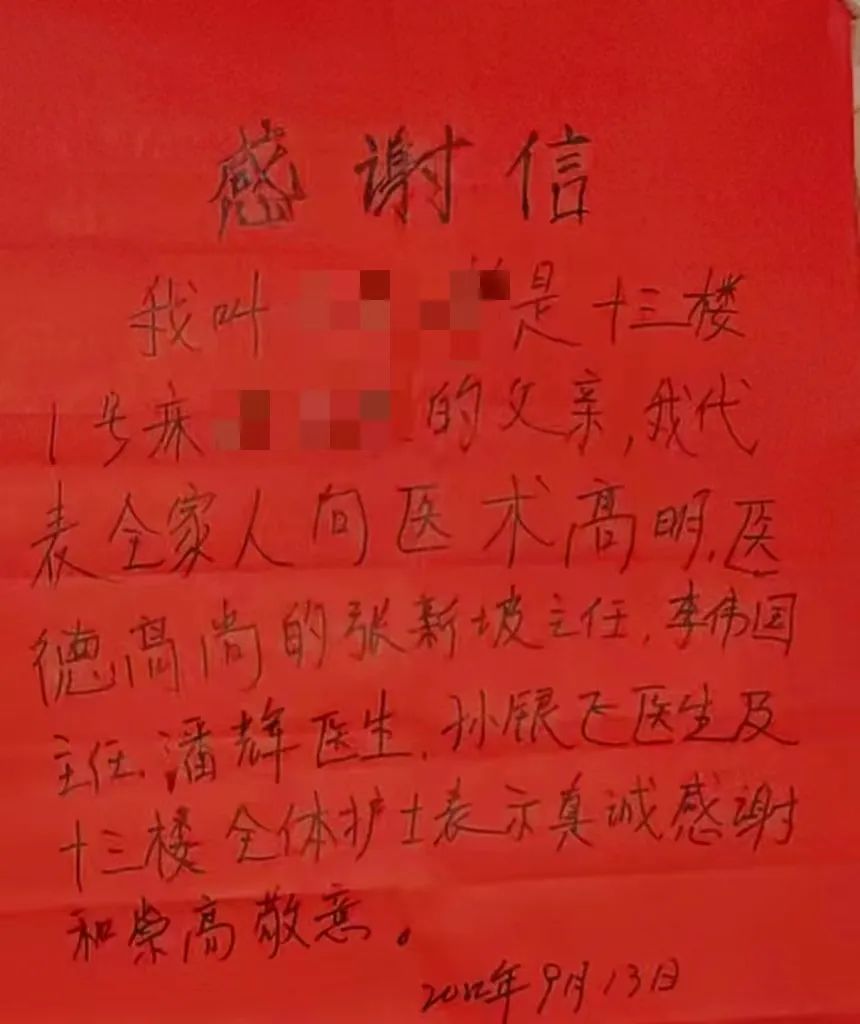 感谢信
我叫 是十三楼
1号床 的父亲,我代
表全家人向医术高明,医
德高尚的张新坡主任,李伟国
主任,潘辉医生,孙银飞医生及
十三楼全体护士表示真诚感谢
和崇高敬意。
2022年9月13日